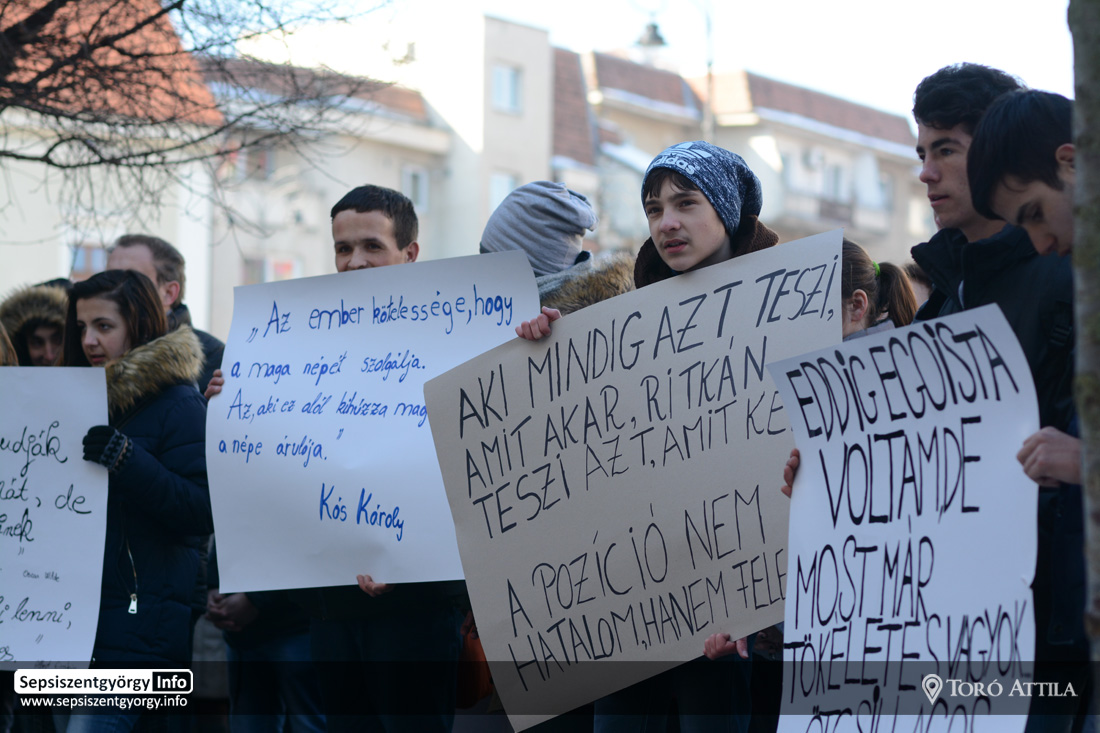 udják
hát, de
inek
"
lenni;
"
„Az ember kötelessége, hogy
a maga népét szolgálja.
Az, aki ez alól kihúzza magát
a népe árulója."
Kós Károly
AKI MINDIG AZT TESZI,
AMIT AKAR, RITKÁN
TESZI AZT, AMIT KE
A POZÍCIÓ NEM
HATALOM, HANEM FELE
EDDIG EGOISTA
VOLTAM, DE
MOST MÁR
TÖKÉLETES VAGYOK
ÖTCSILLAGOS
adidas
Sepsiszentgyörgy.Info
www.sepsiszentgyorgy.info
TORÓ ATTILA